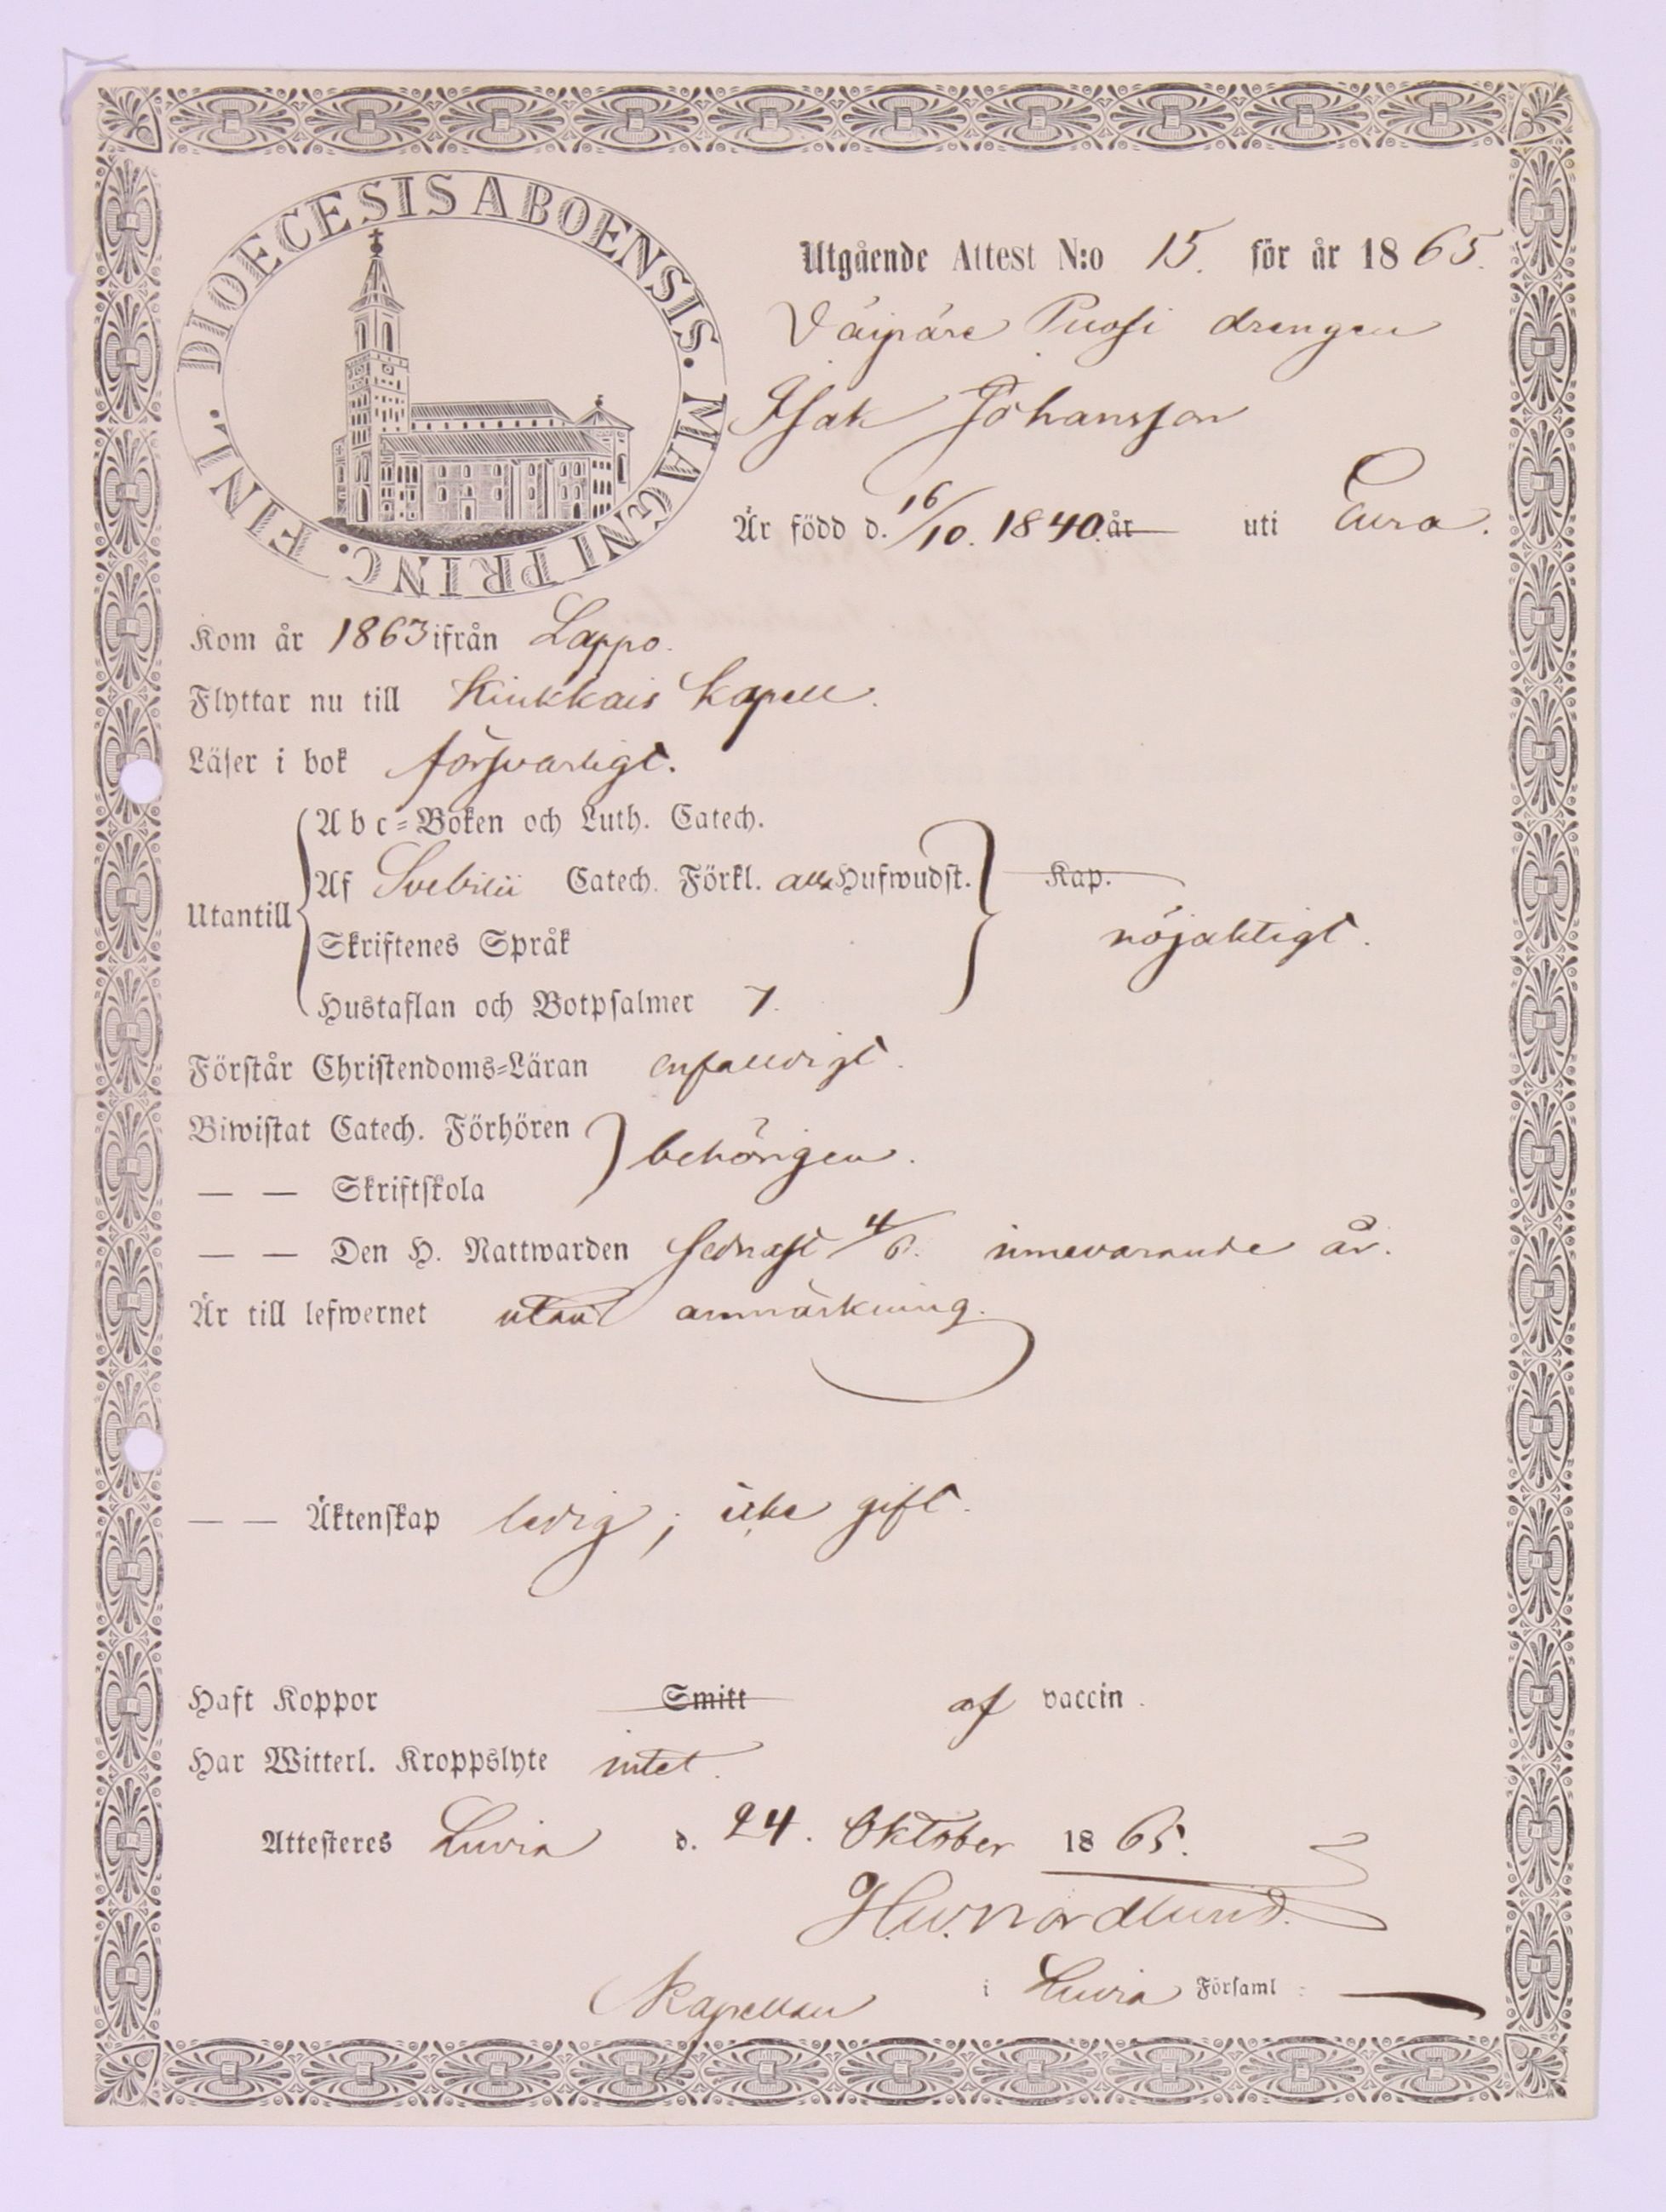 DIOECESIS ABOENSIS. MAGNI PRINC. FINL.
Utgående Attest N:o 15. för år 1865.
Väipäre Puosi drengen
Isak Johansson
Är född d. 16/10. 1840. år uti Eura.
Kom år 1863 ifrån Lappo.
Flyttar nu till Kiukkais Kapell.
Läser i bok försvarligt.
Abc-Boken och Luth. Catech.
Utantill Af Svebilii Catech. Förkl. alla Hufwudst. Kap.
Skriftenes Språk nöjaktigt.
Hustaflan och Botpsalmer 7.
Förstår Christendoms-Läran enfalldigt.
Biwistat Catech. Förhören behörigen.
— — Skriftskola
— — Den H. Nattwarden sednast 4/6. innevarande år.
Är till lefwernet utan anmärkning.
— — Äktenskap ledig; icke gift.
Haft Koppor Smitt af vaccin.
Har Witterl. Kroppslyte intet.
Attesteres Luvia d. 24. Oktober 1865.
H.W. Nordlund.
Kapellan i Luvia Församl: